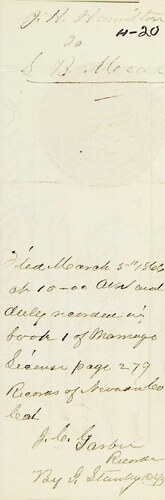 J. H. Hamilton
4-20
To
S. B.
Filed March 5th 1866
at 10-00 A.M. and
duly recorded in
book 1 of Marriage
License page 279
Records of Nevada Co
Cal
J. C. Garber
Recorder
By J. Stanley Dpty